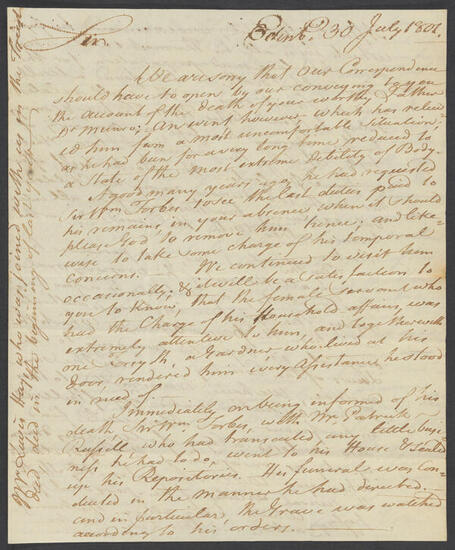 Edinb.^r 30 July 1801.
Sir.
We are sorry that our Correspondence
should have to open by our conveying to you
the account of the death of your worthy Father
Dr Munro; An event however, which has reliev
ed him from a most uncomfortable Situation,
as he had been for a very long time reduced to
a State of the most extreme debility of Body.
A good many years ago, he had requested
Sir Wm. Forbes, to see the last duties paid to
his remains, in your absence when it should
please God to remove him hence; and like-
wise to take some charge of his temporal
Concerns. — We continued to visit him
occasionally; & it will be a satisfaction to
you to know, that the female servant who
had the Charge of his Household affairs, was
extremely attentive to him, and together with
one Forsyth, a Gardner, who lived at his
Door, rendered him every Assistance he stood
in need of.
Immediately on being informed of his
death Sir Wm. Forbes, with Mr. Patrick
Russell who had transacted any little busi
ness he had to do, went to his House & Seald
up his Repositories. His funeral was con-
ducted in the manner he had directed.
and in particular the Grave was watched
according to his orders.
Mr Lewis Hay who was joined with us in the Trust
died in the beginning of last year